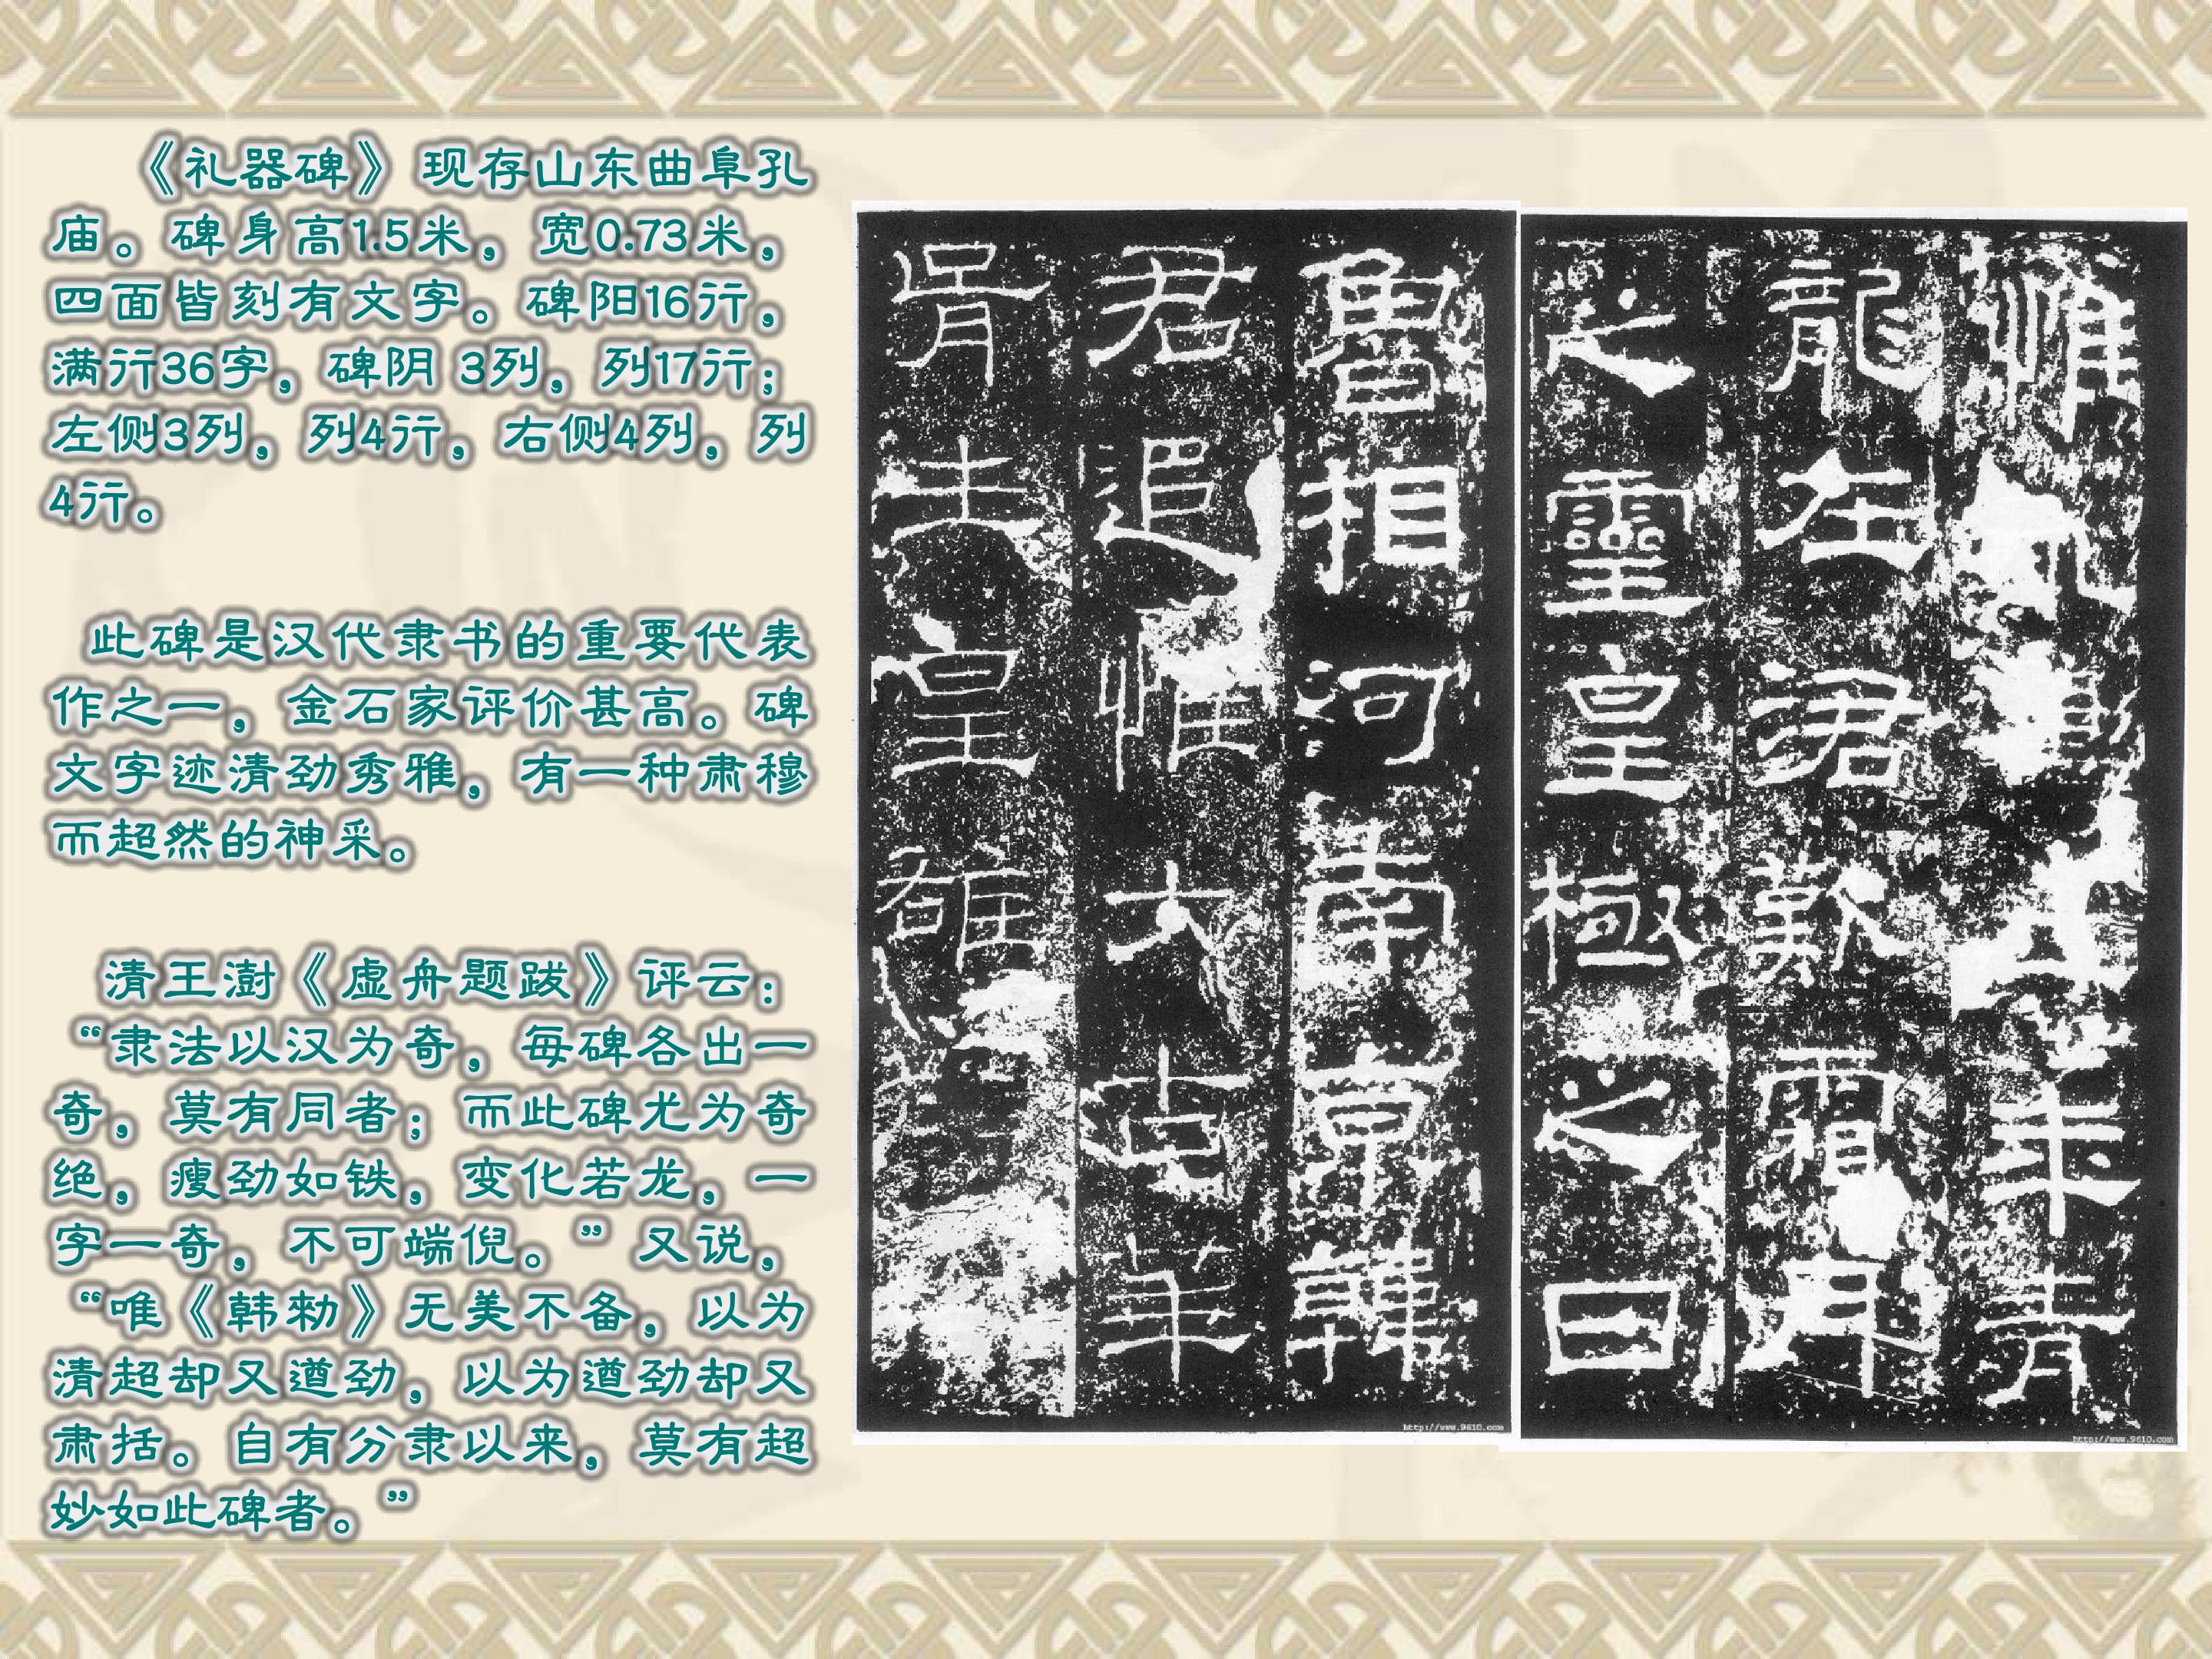 《礼器碑》现存山东曲阜孔
庙。碑身高1.5米，宽0.73米，
四面皆刻有文字。碑阳16行，
满行36字，碑阴 3列，列17行；
左侧3列，列4行，右侧4列，列
4行。
此碑是汉代隶书的重要代表
作之一，金石家评价甚高。碑
文字迹清劲秀雅，有一种肃穆
而超然的神采。
清王澍《虚舟题跋》评云：
“隶法以汉为奇，每碑各出一
奇，莫有同者；而此碑尤为奇
绝，瘦劲如铁，变化若龙，一
字一奇，不可端倪。”又说，
“唯《韩勑》无美不备，以为
清超却又遒劲，以为遒劲却又
肃括。自有分隶以来，莫有超
妙如此碑者。”
惟年青
龍在涒歎霜月
之靈皇極之日
魯相河南京韓
君追惟大古華
胥生皇雄
http://www.9610.com
http://www.9610.com